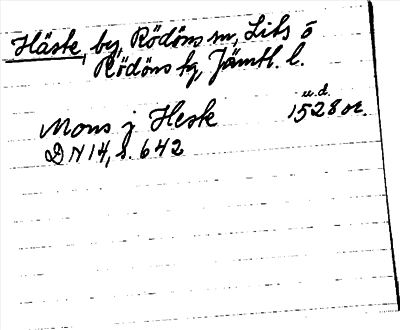 Häste, by, Rödöns sn, Lits ö
Rödöns tg, Jämtl. l.
u.d.
Mons j Hesk 1528 or.
DN 14, s. 642